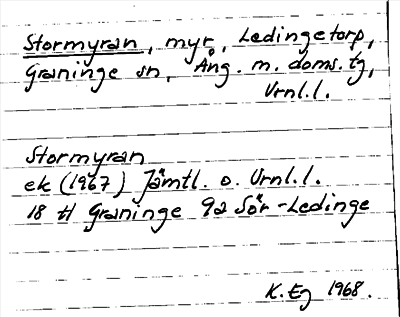 Stormyran, myr, Ledingetorp,
Graninge sn, Ång. m. doms. tg,
Vrnl.l.
Stormyran
ek (1967) Jämtl. o. Vrnl.l.
18 H Graninge 9a Sör-Ledinge
K. Eg 1968.